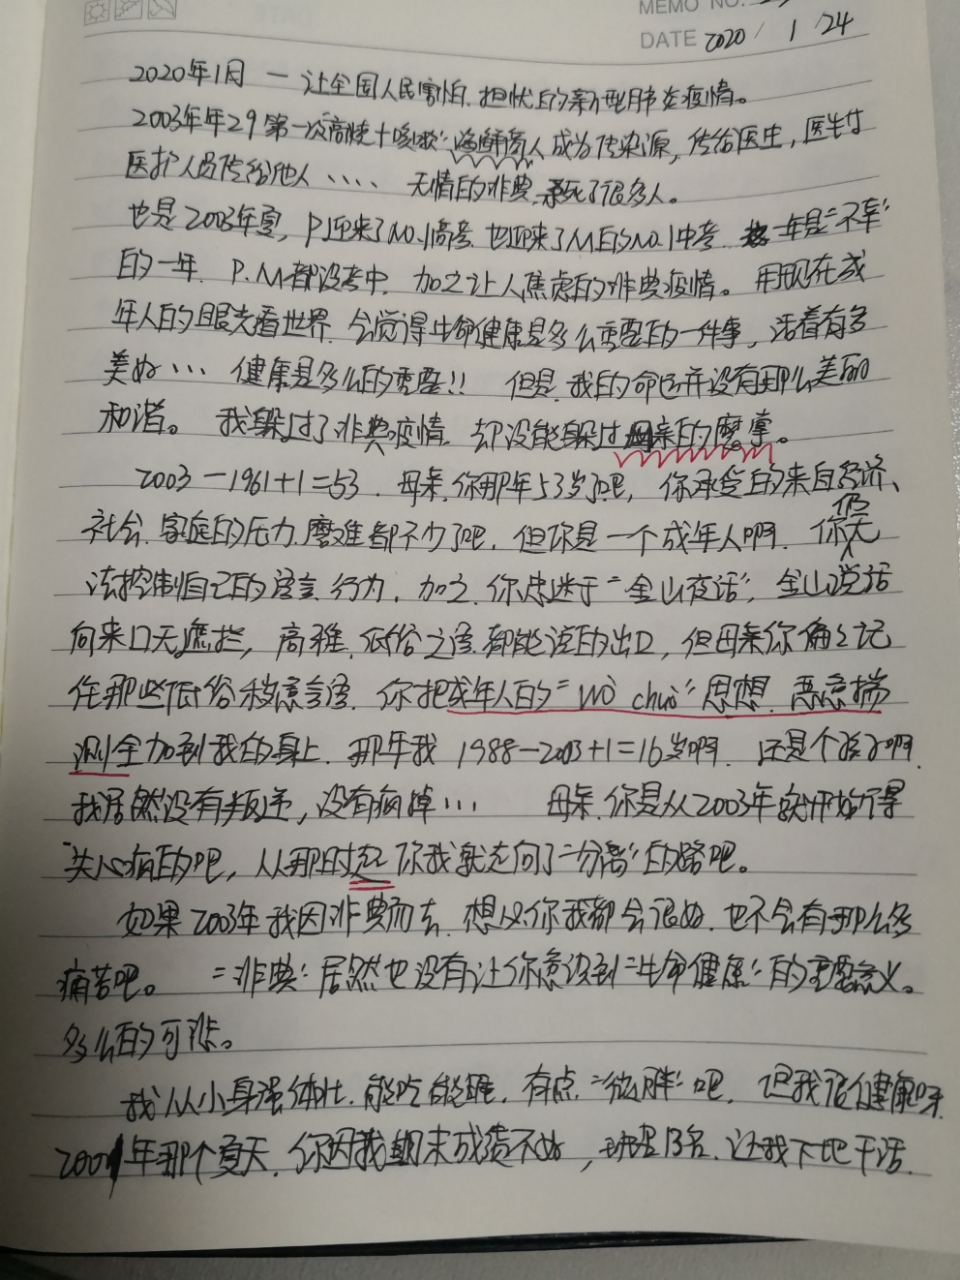 MEMO NO.
DATE 2020 / 1 / 24
2020年1月 — 让全国人民害怕、担忧的新型肺炎疫情。
2003年年29第一次"高烧+咳嗽"海鲜商人成为传染源，传给医生，医生给
医护人员传给他人 ···· 无情的非典，死了很多人。
也是2003年夏，P迎来了No.1高考，也迎来了M的No.1中考，一年是"不幸"
的一年，P.M都没考中，加之让人焦虑的非典疫情。用现在成
年人的眼光看世界，会觉得生命健康是多么重要的一件事，活着有多
美好··· 健康是多么的重要!! 但是，我的命运并没有那么美丽
和谐。我躲过了非典疫情，却没能躲过母亲的魔掌。
2003－1961+1=53，母亲，你那年53岁了吧，你承受的来自经济、
社会、家庭的压力、磨难都不少了吧，但你是一个成年人啊，你仍无
法控制自己的语言、行为，加之，你忠迷于"金山夜话"，金山说话
向来口无遮拦，高雅、低俗之语，都能说的出口，但母亲你偏偏记
住那些低俗秽意言语，你把成年人的"wò chuò"思想、恶意揣
测全加到我的身上，那年我 1988－2003+1=16岁啊，还是个孩子啊，
我居然没有叛逆，没有疯掉··· 母亲，你是从2003年就开始得
"失心病的吧，从那时起你我就走向了"分离"的路吧。
如果2003年我因非典而去，想必你我都会很好，也不会有那么多
痛苦吧。 "非典"居然也没有让你意识到"生命健康"的重要意义。
多么的可悲。
我从小身强体壮，能吃能睡，有点"微胖"吧，但我很健康呀，
2001年那个夏天，你因我期末成绩不好，班里13名，让我下地干活，